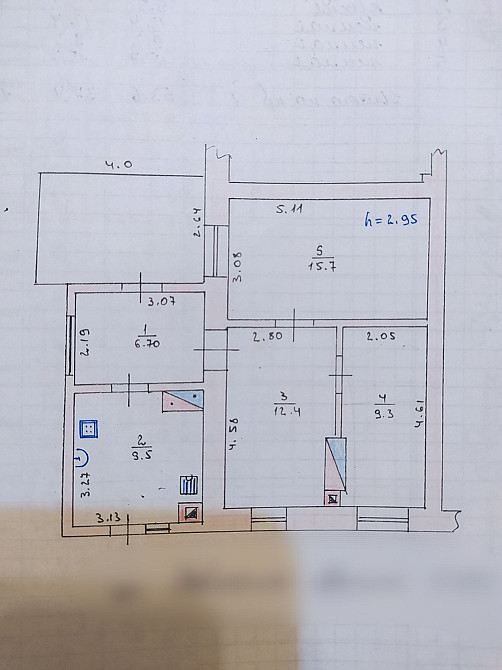 4.0
2.64
5.11
h=2.95
3.08
5
15.7
3.07
2.19
1
6.70
2.80
2.05
3
12.4
4
9.3
4.58
4.61
2
9.5
3.27
3.13